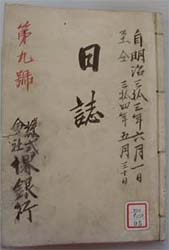 自明治三拾三年六月一日
至仝三拾四年五月三十日
日誌
第九號
株式
會社
堺銀行